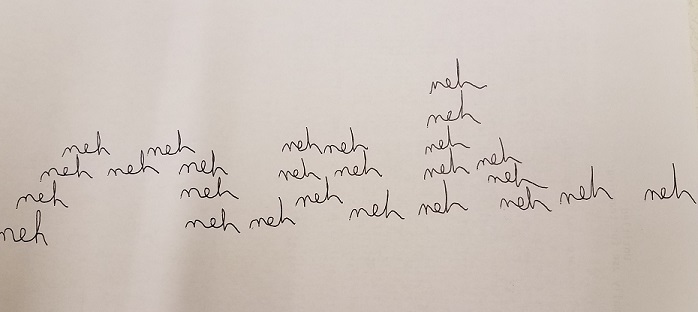 neh
neh
neh neh nehneh neh
neh neh neh neh neh neh neh
neh neh neh neh
neh neh neh neh neh neh neh neh